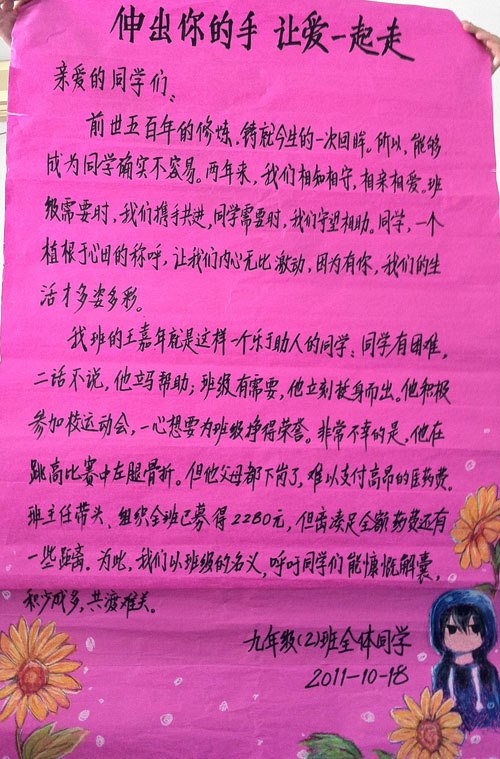 伸出你的手 让爱一起走
亲爱的同学们:
前世五百年的修炼,铸就今生的一次回眸。所以,能够
成为同学确实不容易。两年来,我们相知相守,相亲相爱。班
级需要时,我们携手共进,同学需要时,我们守望相助。同学,一个
植根于心田的称呼,让我们内心无比激动,因为有你,我们的生
活才多姿多彩。
我班的王嘉年就是这样一个乐于助人的同学:同学有困难,
二话不说,他立马帮助;班级有需要,他立刻挺身而出。他积极
参加校运动会,一心想要为班级挣得荣誉。非常不幸的是,他在
跳高比赛中左腿骨折。但他父母都下岗了,难以支付高昂的医药费。
班主任带头、组织全班已募得2280元,但离凑足全额药费还有
一些距离。为此,我们以班级的名义,呼吁同学们能慷慨解囊,
积少成多,共渡难关。
九年级(2)班全体同学
2011-10-18